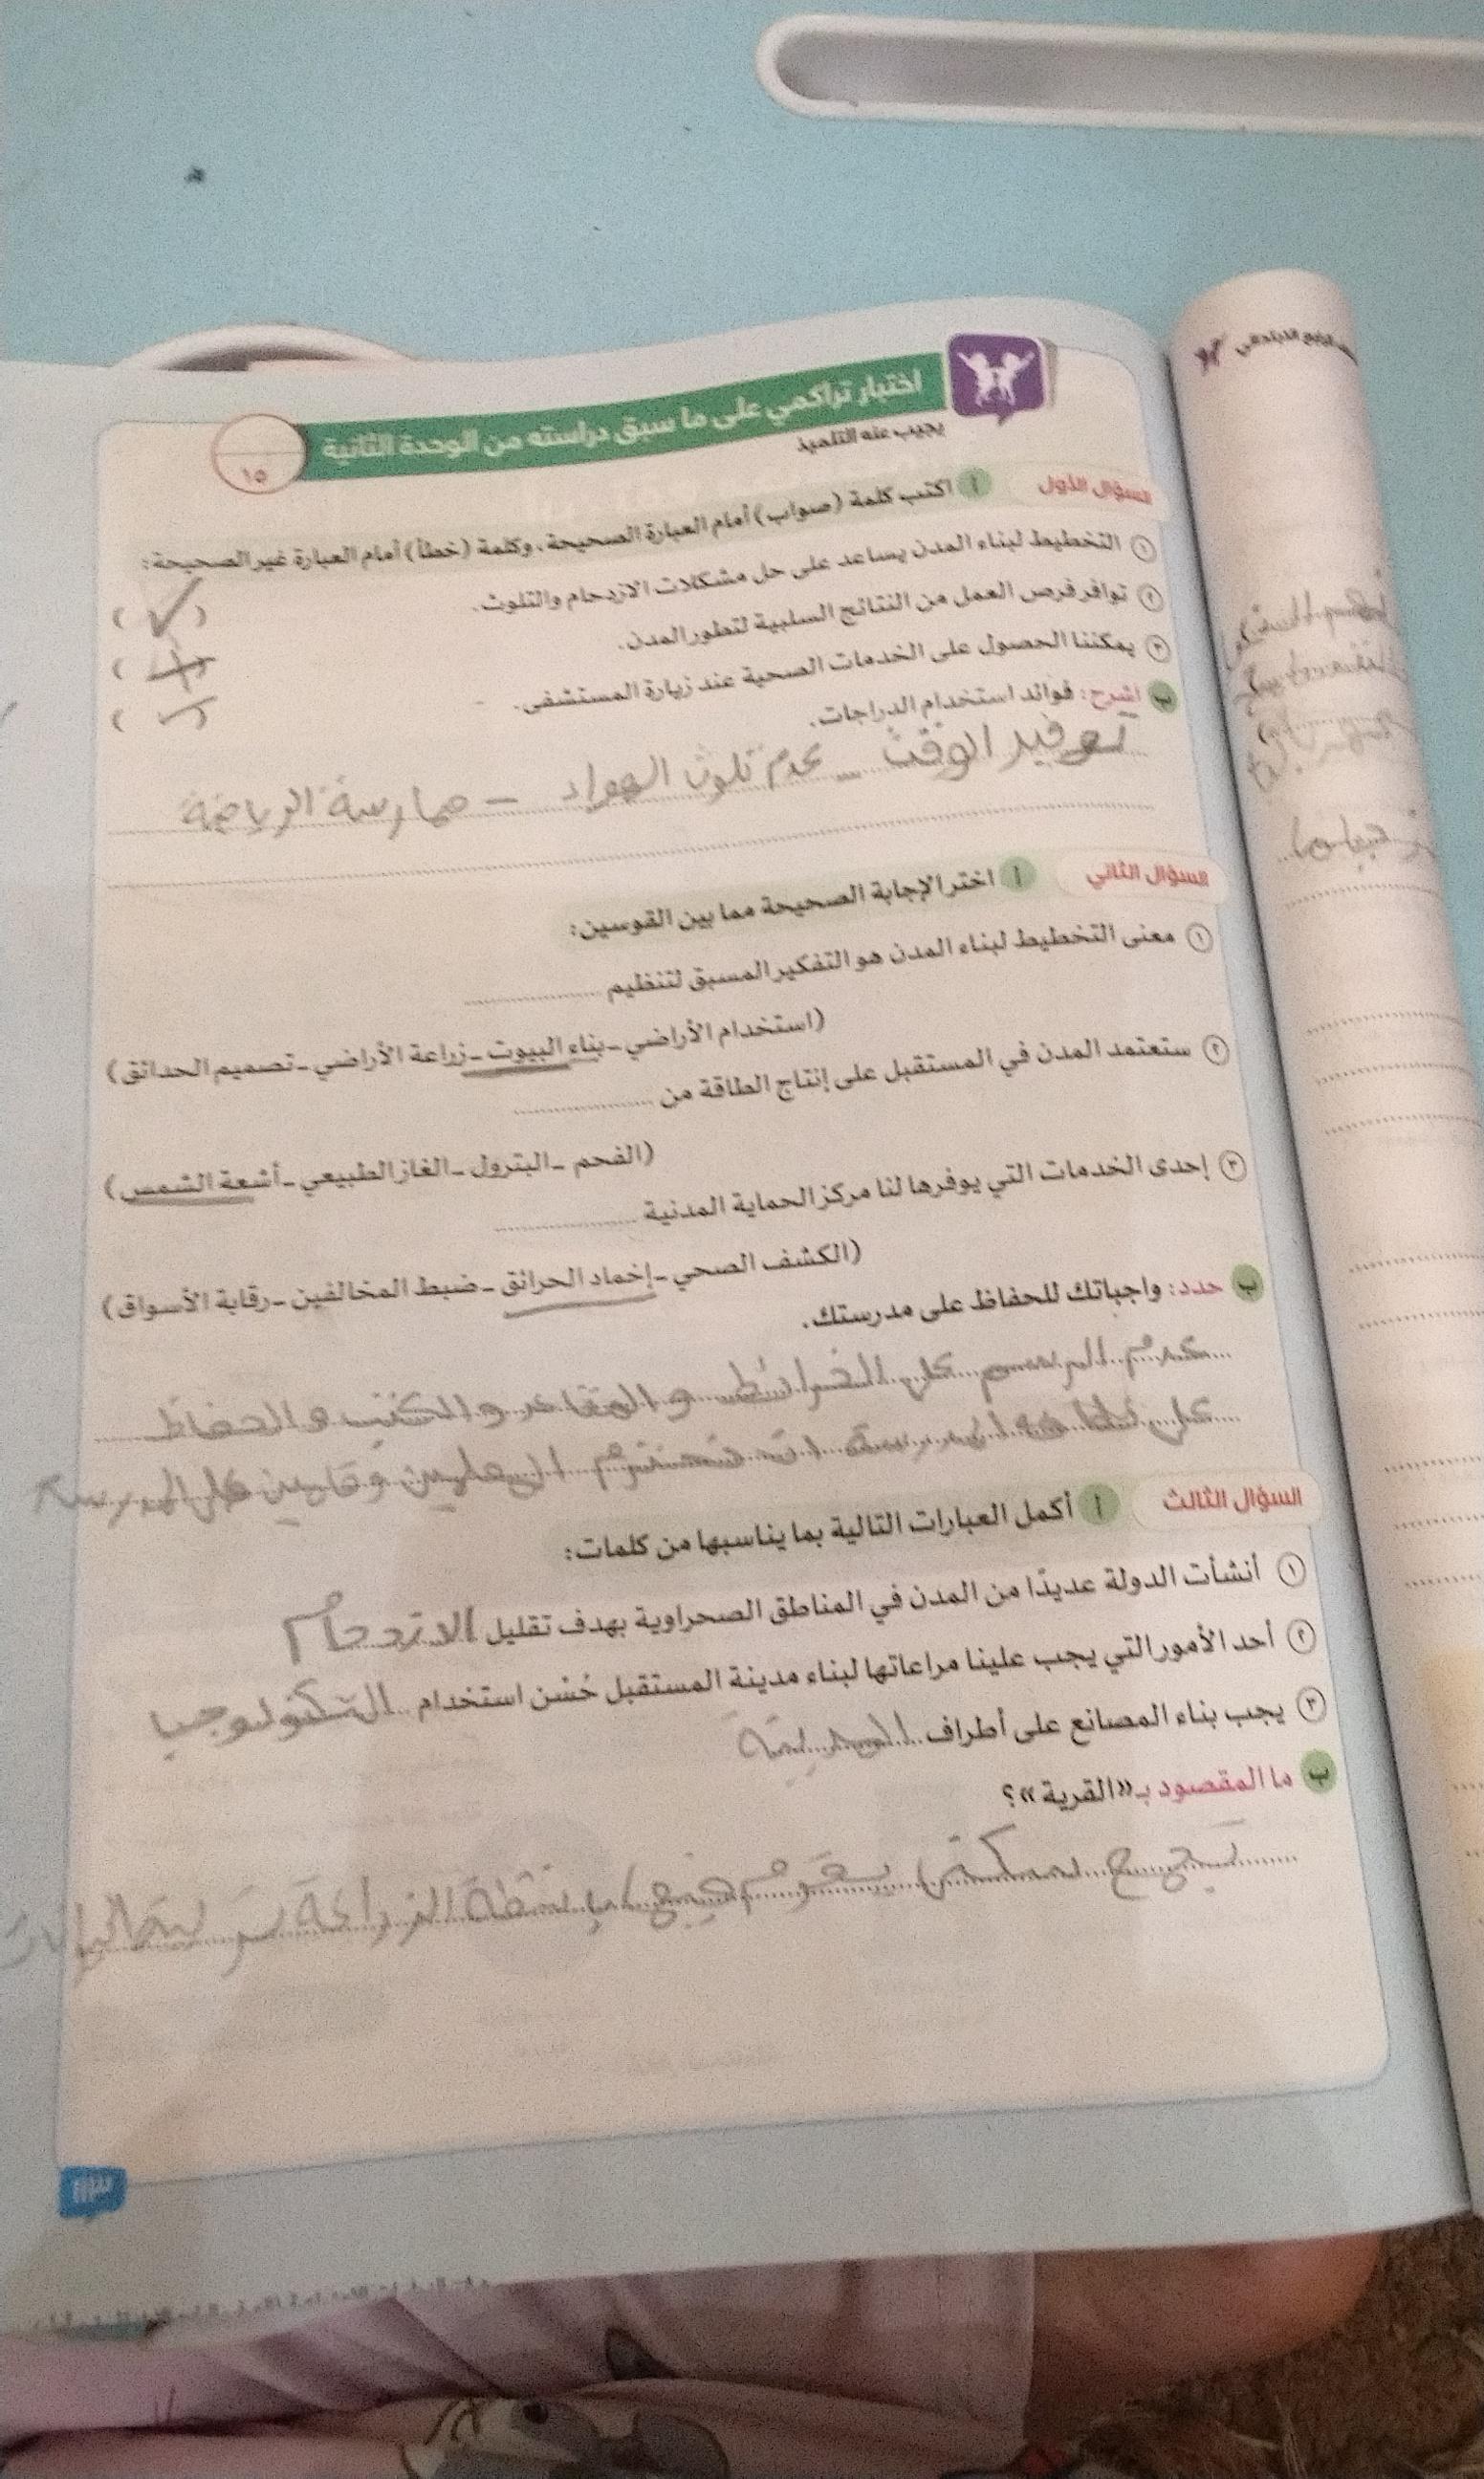 الرابع الابتدائي
اختبار تراكمي على ما سبق دراسته من الوحدة الثانية
١٥
يجيب عنه التلميذ
السؤال الأول أ اكتب كلمة (صواب) أمام العبارة الصحيحة، وكلمة (خطأ) أمام العبارة غير الصحيحة:
١ التخطيط لبناء المدن يساعد على حل مشكلات الازدحام والتلوث. (✓)
٢ توافر فرص العمل من النتائج السلبية لتطور المدن. ( )
٣ يمكننا الحصول على الخدمات الصحية عند زيارة المستشفى. (✓)
ب اشرح: فوائد استخدام الدراجات.
الوقت - عدم تلوث الهواء - ممارسة الرياضة
السؤال الثاني أ اختر الإجابة الصحيحة مما بين القوسين:
١ معنى التخطيط لبناء المدن هو التفكير المسبق لتنظيم
(استخدام الأراضي - بناء البيوت - زراعة الأراضي - تصميم الحدائق)
٢ ستعتمد المدن في المستقبل على إنتاج الطاقة من
(الفحم - البترول - الغاز الطبيعي - أشعة الشمس)
٣ إحدى الخدمات التي يوفرها لنا مركز الحماية المدنية
(الكشف الصحي - إخماد الحرائق - ضبط المخالفين - رقابة الأسواق)
ب حدد: واجباتك للحفاظ على مدرستك.
عدم الرسم على و المقاعد و الكتب و الحفاظ
على المدرسة المعلمين المدرسة
السؤال الثالث أ أكمل العبارات التالية بما يناسبها من كلمات:
١ أنشأت الدولة عديدًا من المدن في المناطق الصحراوية بهدف تقليل الازدحام
٢ أحد الأمور التي يجب علينا مراعاتها لبناء مدينة المستقبل حُسْن استخدام التكنولوجيا
٣ يجب بناء المصانع على أطراف المدينة
ب ما المقصود بـ «القرية»؟
تجمع سكني يقوم الزراعة
١١٣